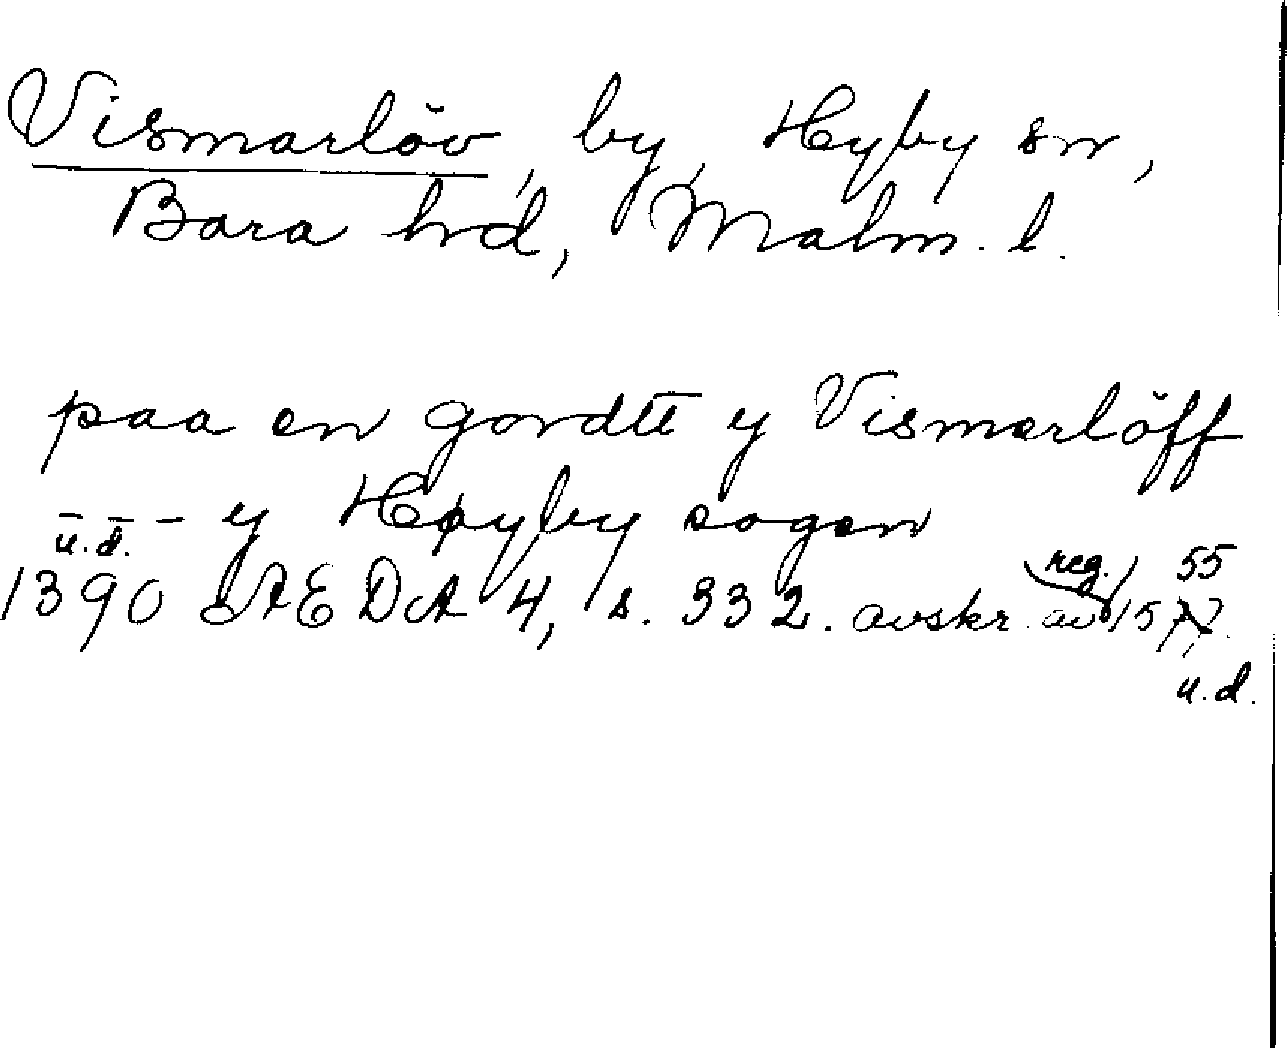 Vismarlöv, by, Hyby sn,
Bara hd, Malm. l.
paa en gordtt y Vismerlöff
- - - y Høyby sogen
u.d.
reg. 55
1390 ÆDA 4, s. 332. avskr. av 1577.
u.d.